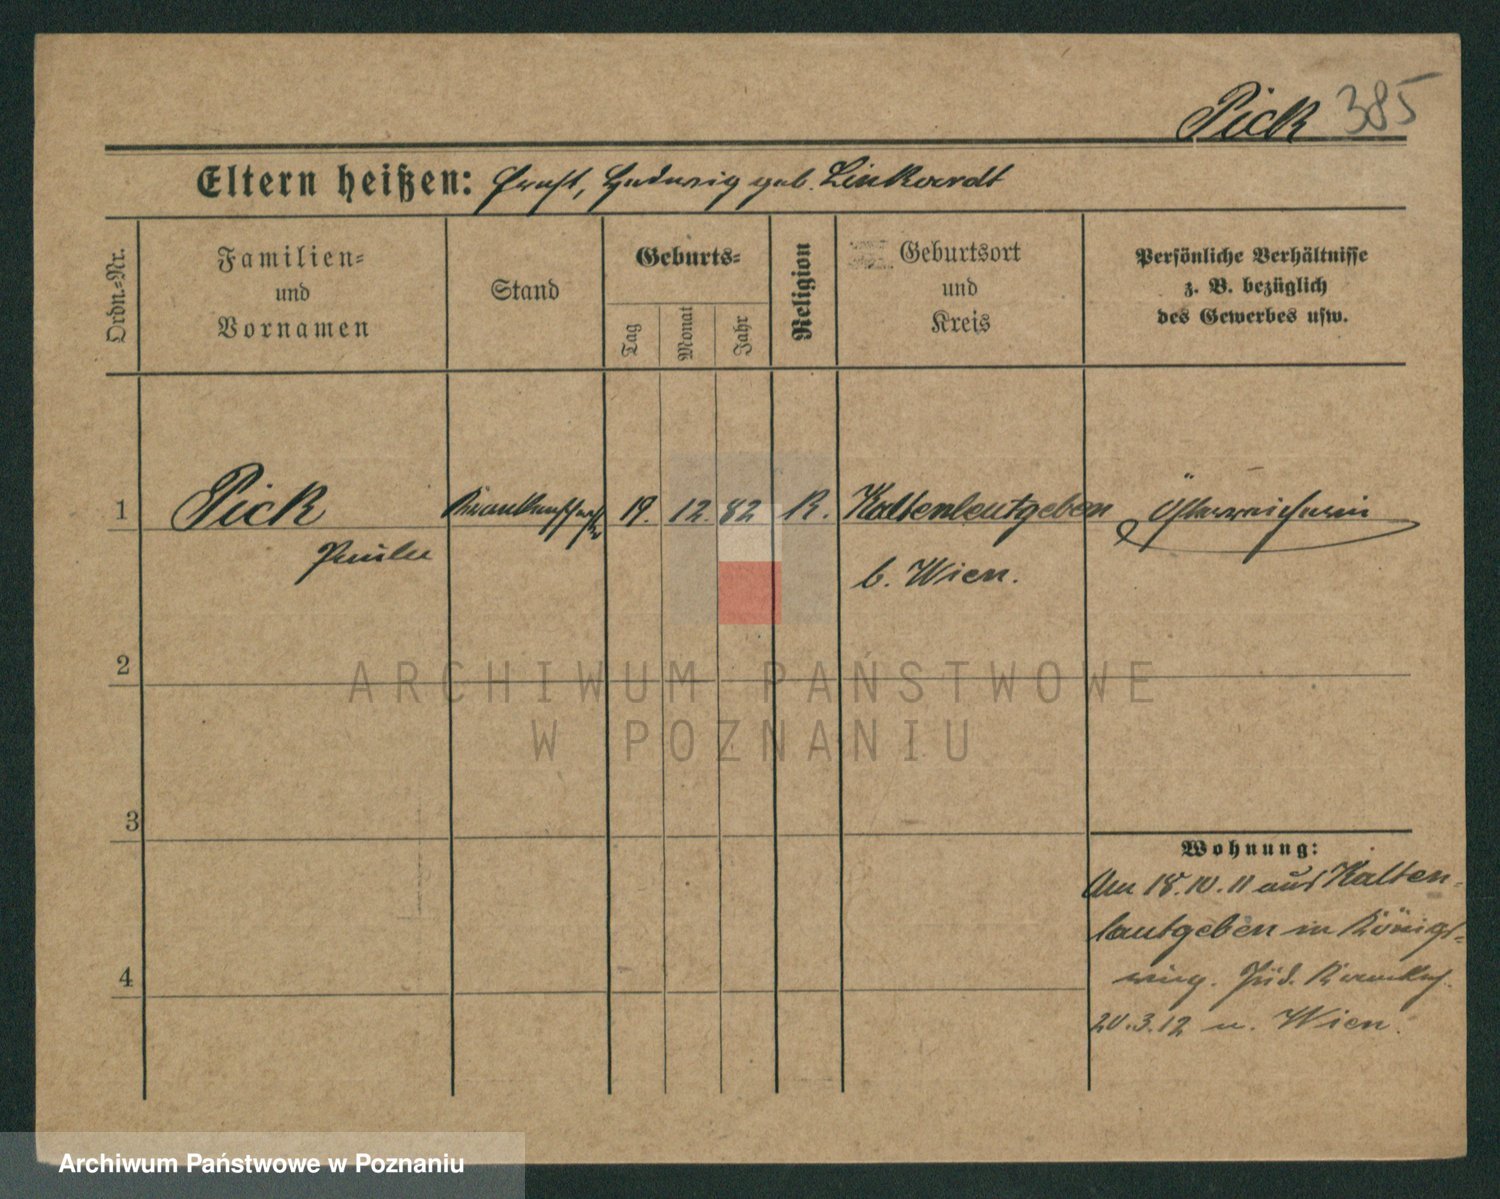 Pick 385
Eltern heißen: Ernst, Hedwig geb. Linkardt
Ordn.-Nr.
Familien-
und
Vornamen
Stand
Geburts-
Tag
Monat
Jahr
Religion
Geburtsort
und
Kreis
Persönliche Verhältnisse
z. B. bezüglich
des Gewerbes usw.
1 Pick 19. 12. 82 K. Kaltenleutgeben Österreicherin
Paula b. Wien.
2
3
4
Wohnung:
Am 18.10.11 aus Kalten-
lautgeben in Königs-
Jüd. Krankh.
20.3.12 n. Wien.
ARCHIWUM PAŃSTWOWE
W POZNANIU
Archiwum Państwowe w Poznaniu